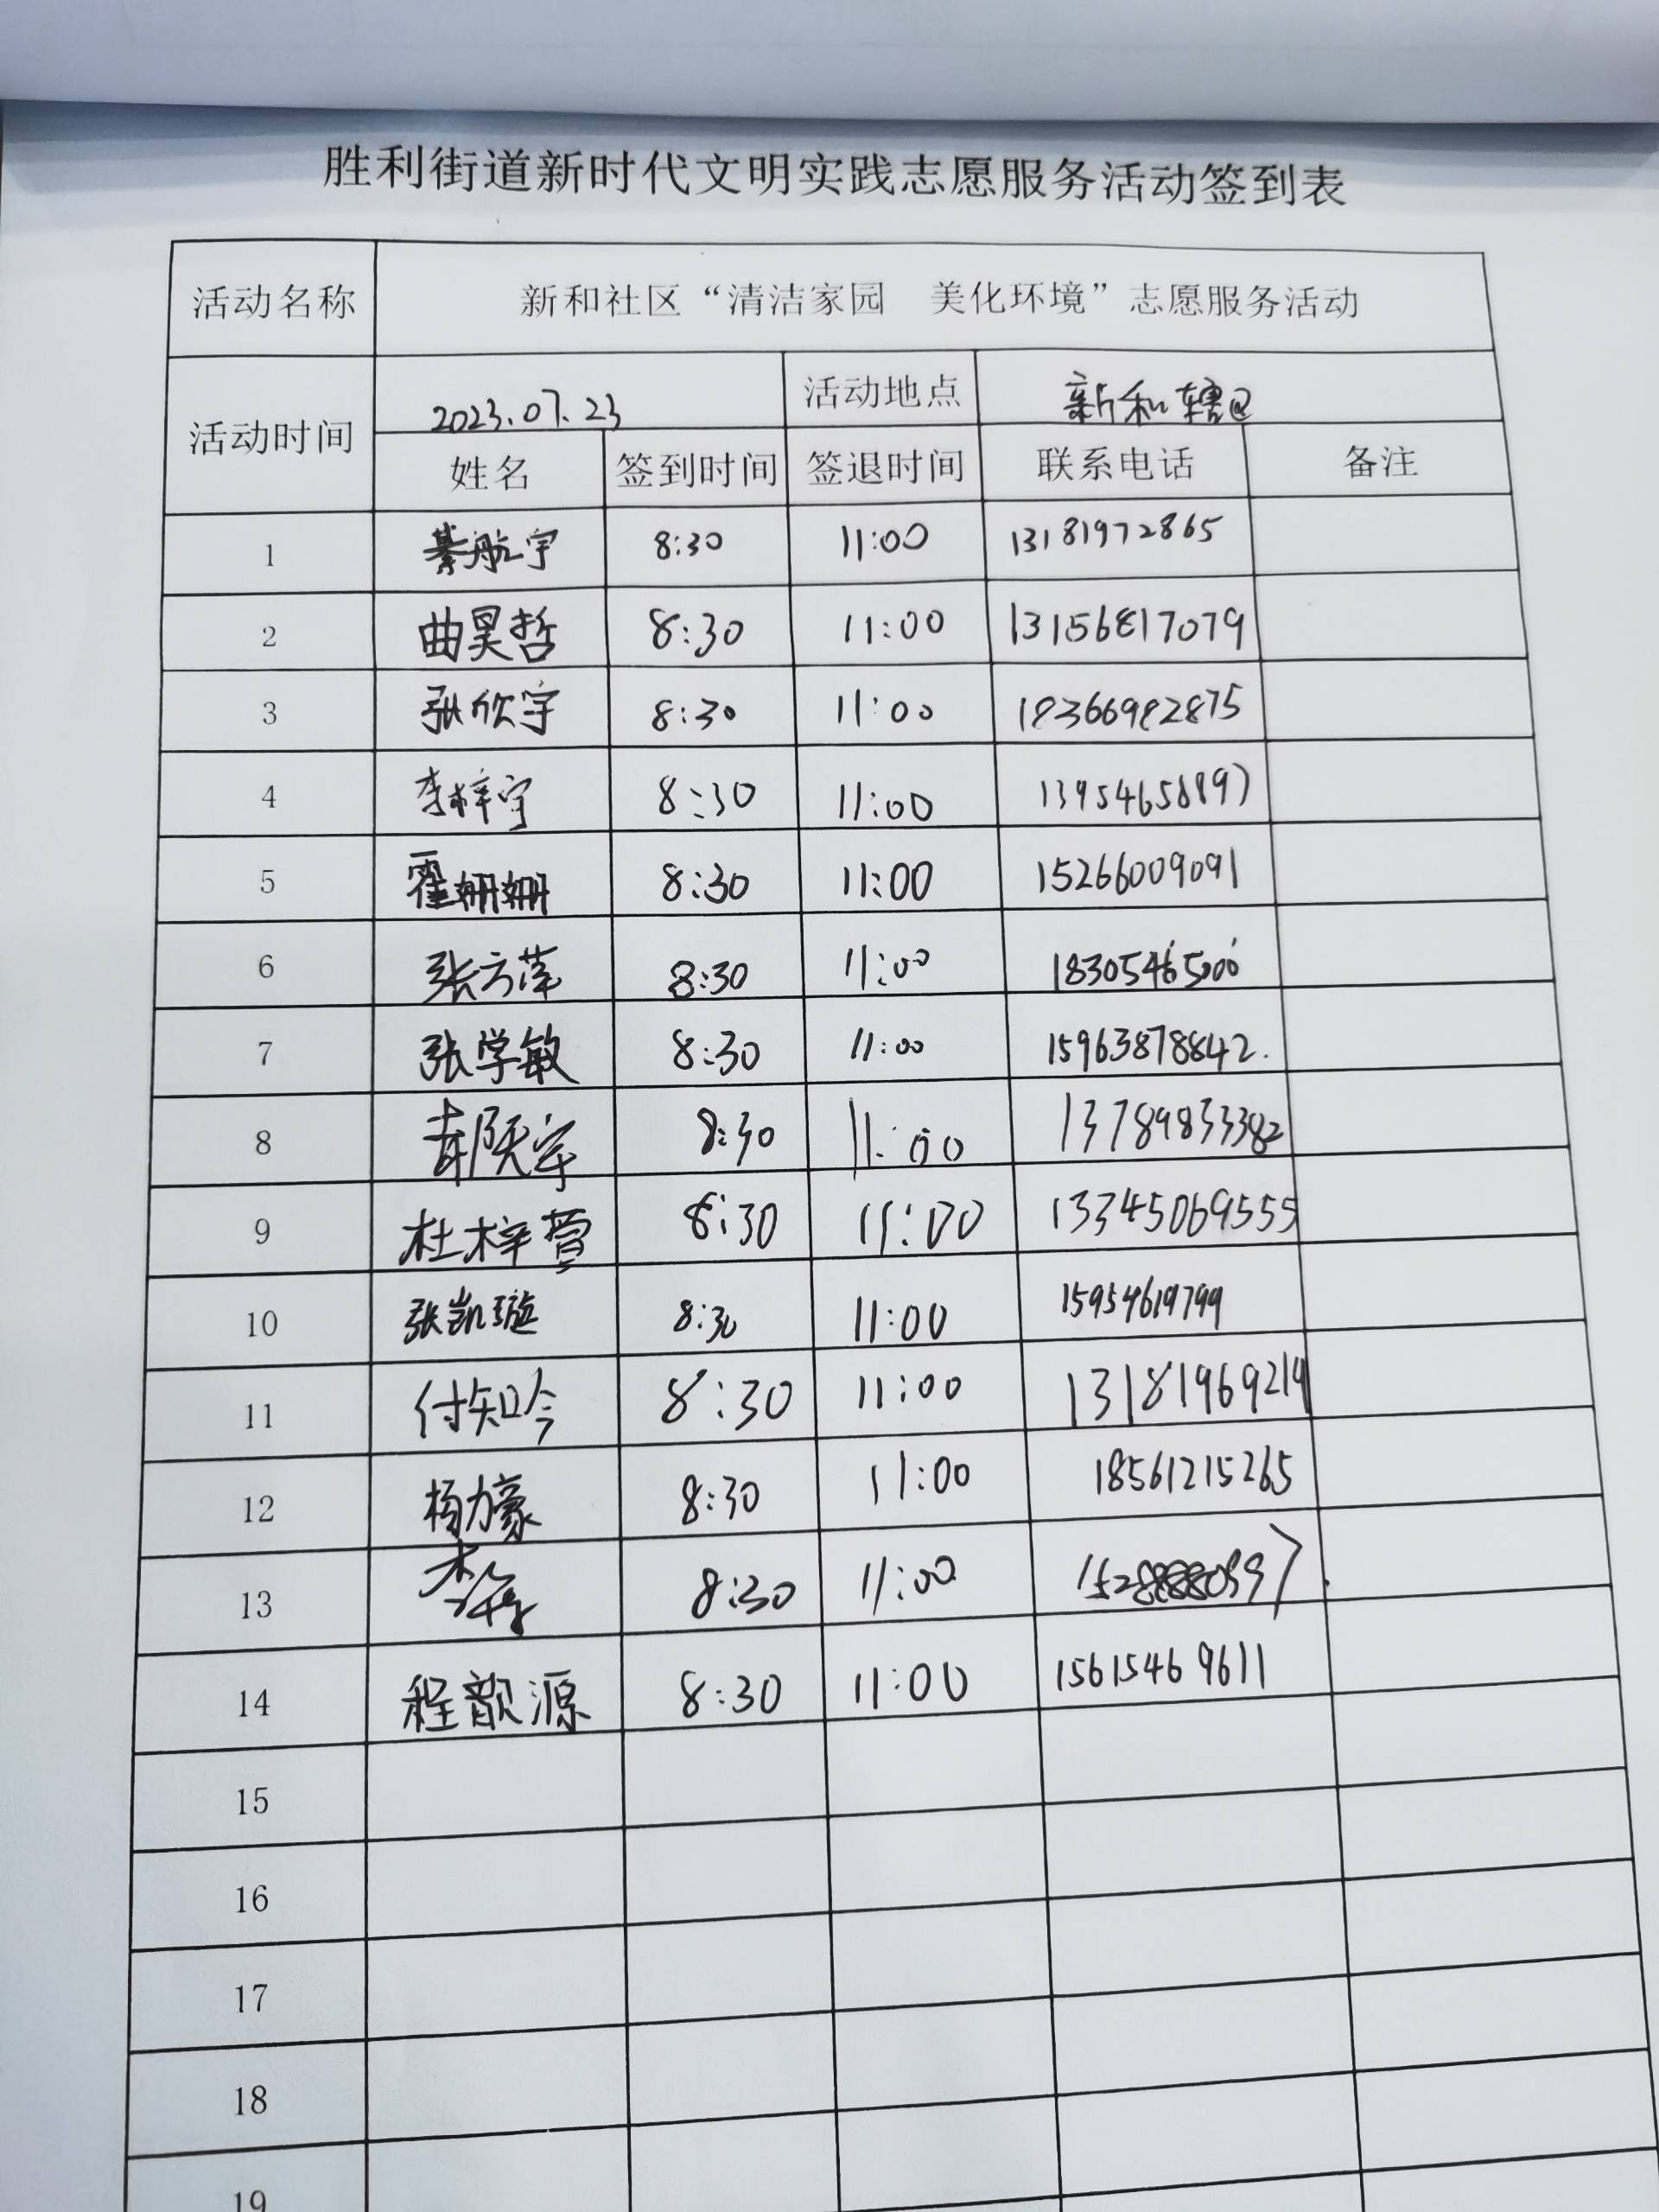 胜利街道新时代文明实践志愿服务活动签到表
活动名称 新和社区“清洁家园 美化环境”志愿服务活动
活动时间 2023.07.23 活动地点 新和辖区
姓名 签到时间 签退时间 联系电话 备注
1 綦航宇 8:30 11:00 13181972865
2 曲昊哲 8:30 11:00 13156817079
3 张欣宇 8:30 11:00 18366982875
4 李梓宁 8:30 11:00
5 霍姗姗 8:30 11:00 15266009091
6 张方萍 8:30 11:00 18305465000
7 张学敏 8:30 11:00 15963878842.
8 8:30 11:00 13789833382
9 杜梓萱 8:30 11:00 13345069555
10 张凯璇 8:30 11:00 15954619799
11 付知吟 8:30 11:00 13181969219
12 杨力豪 8:30 11:00 18561215265
13 8:30 11:00
14 程歆源 8:30 11:00 15615469611
15
16
17
18
19